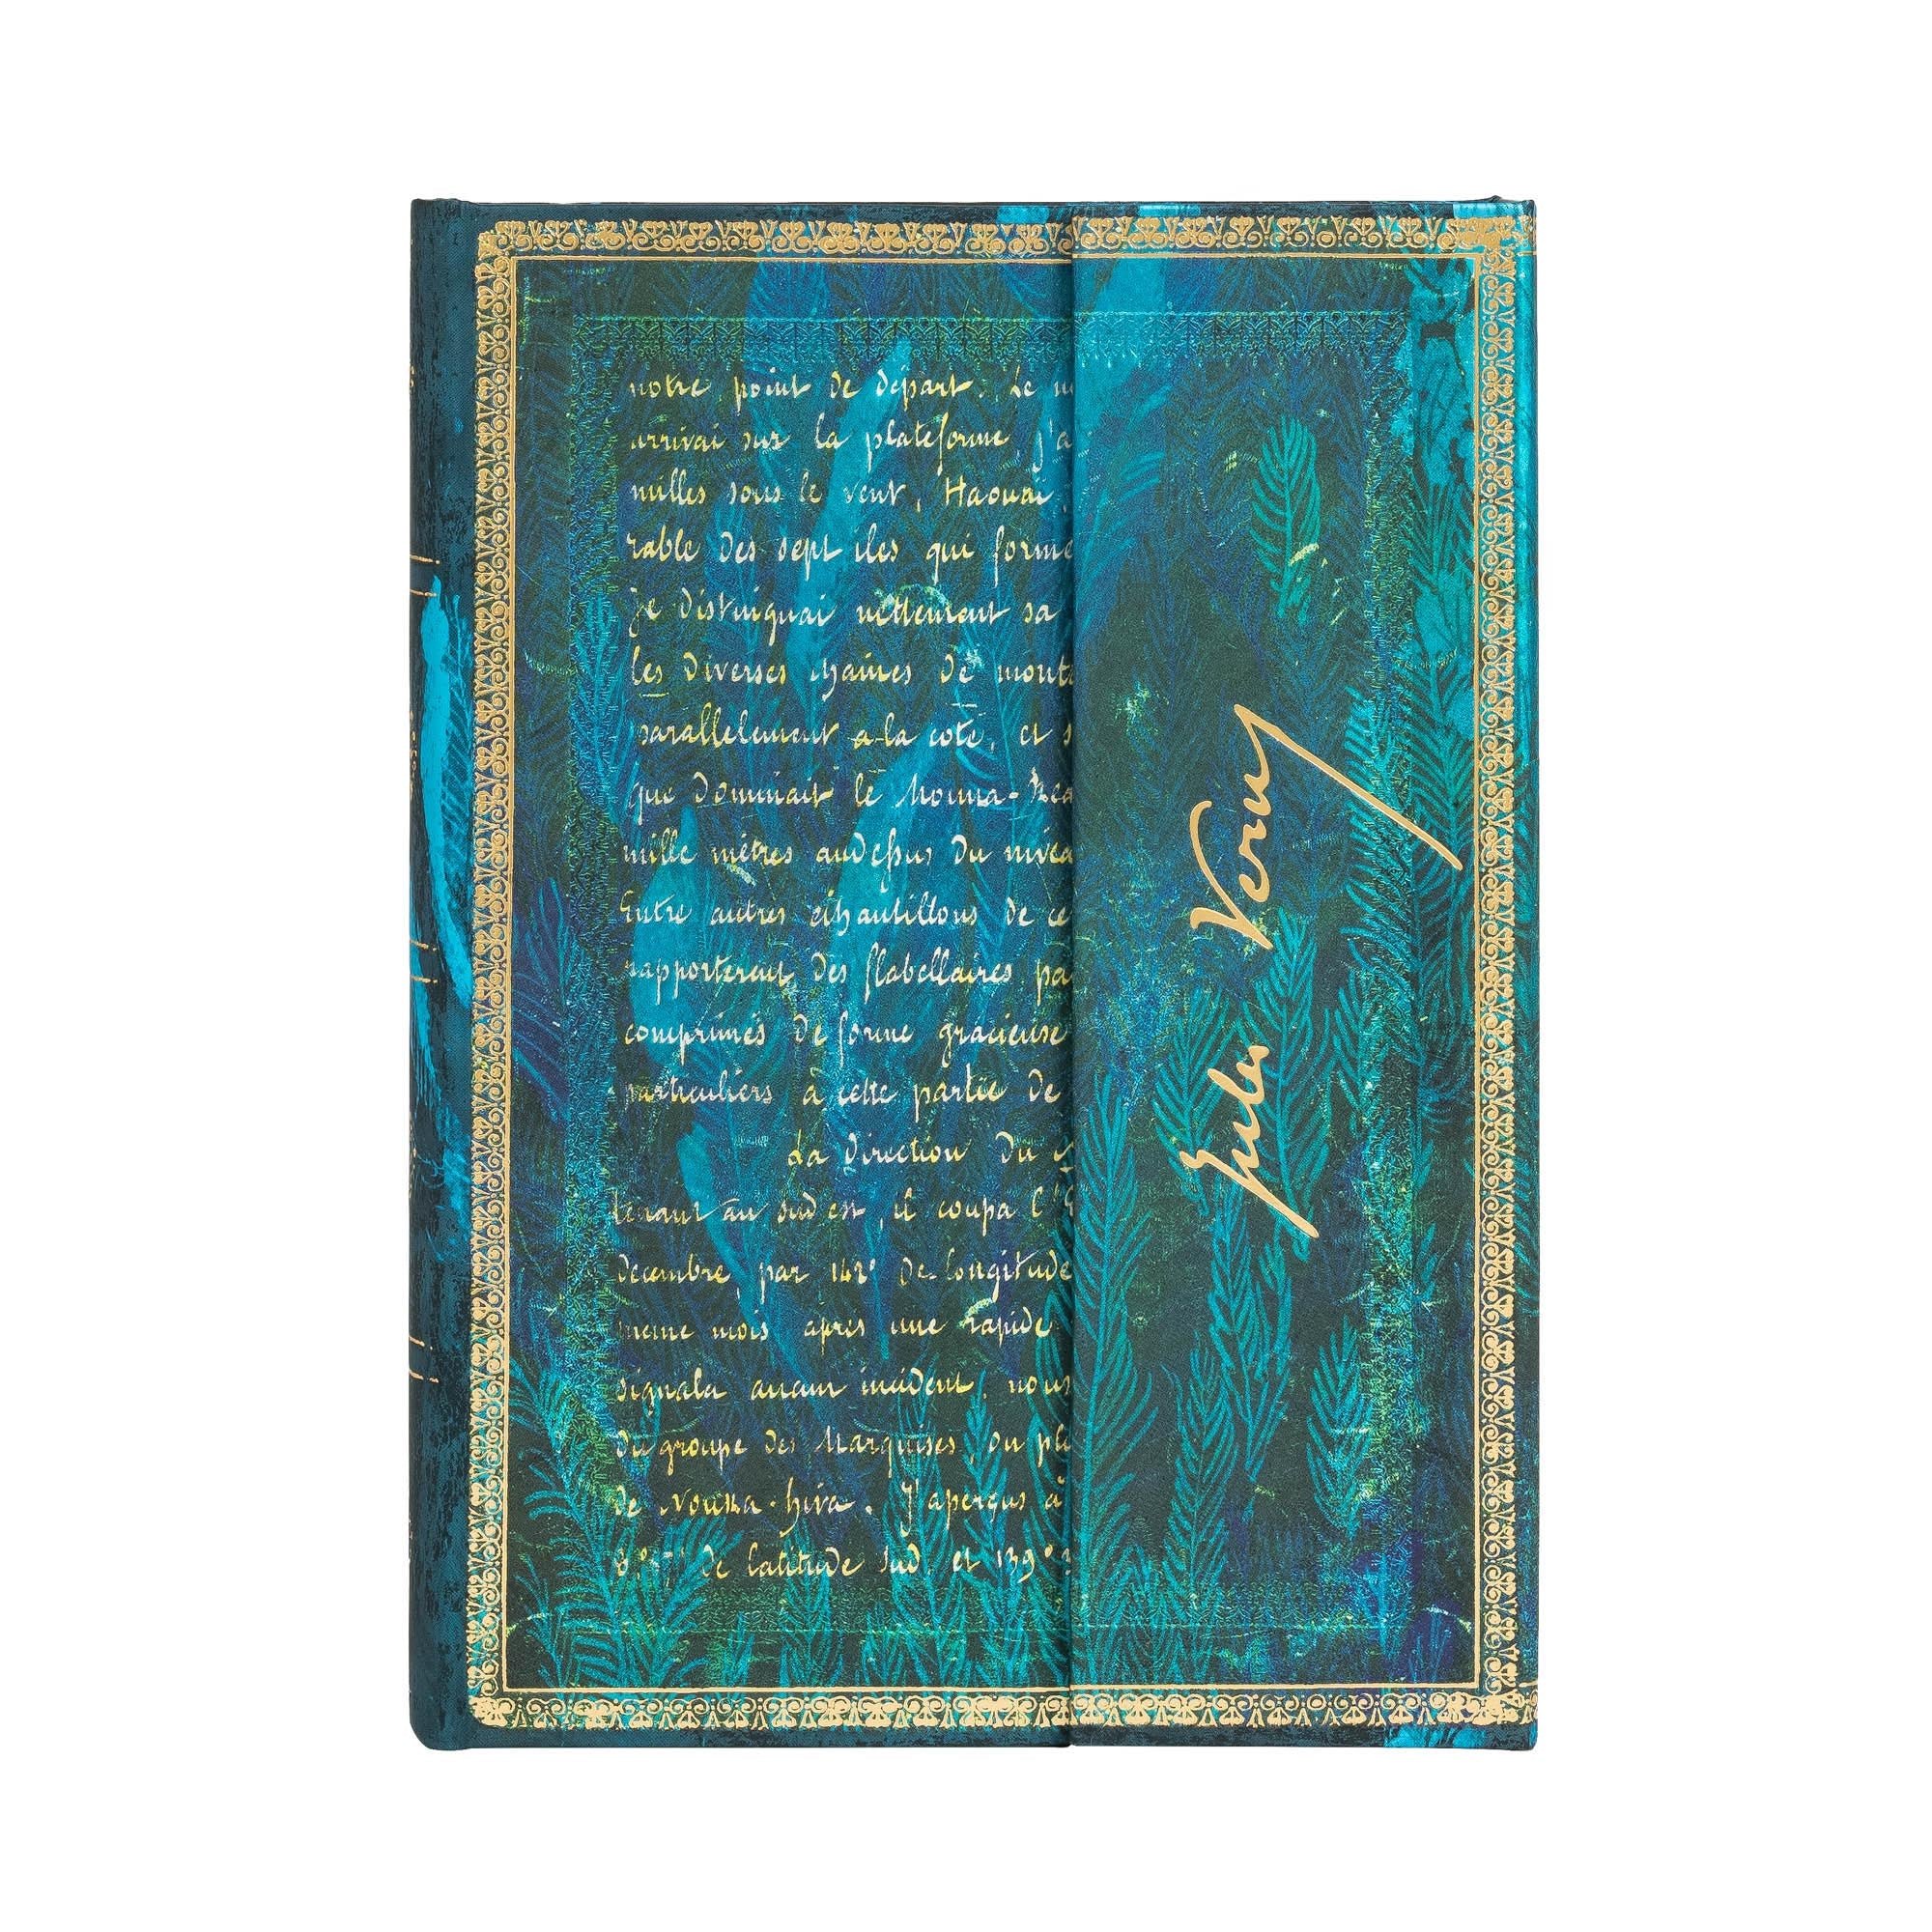 notre point de départ. Le
arrivai sur la plateforme, j'a
milles sous le vent, Haouaï,
rable des sept iles qui forme
Je distinguai nettement sa
les diverses chaines de mont
parallelement a la coté, et s
que dominait le Mouna-Rea
mille mètres audessus du nivea
Entre autres échantillons de ce
rapporterent des flabellaires pa
comprimés de forme gracieuse
particuliers à cette partie de
La direction du
tenant au sud est, il coupa l'E
décembre, par 142° de longitude
meme mois après une rapide
signala aucun incident, nous
du groupe des Marquises, ou pl
de Nouka-hiva. J'aperçus à
8° 57' de latitude sud, et 139° 3
Jules Verne